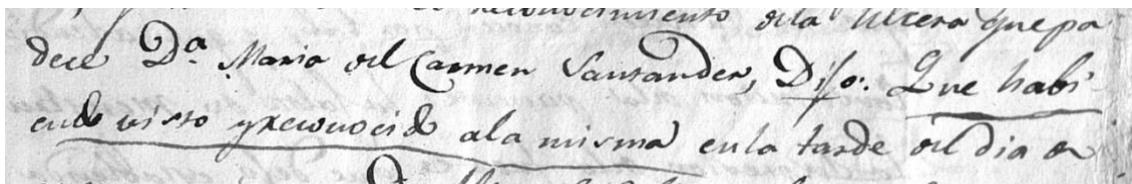 reconocimiento dela Ulcera quepa
dece D.ª Maria del Carmen Santander, Dijo: Que habi-
endo visto yreconocido ala misma enla tarde del dia de